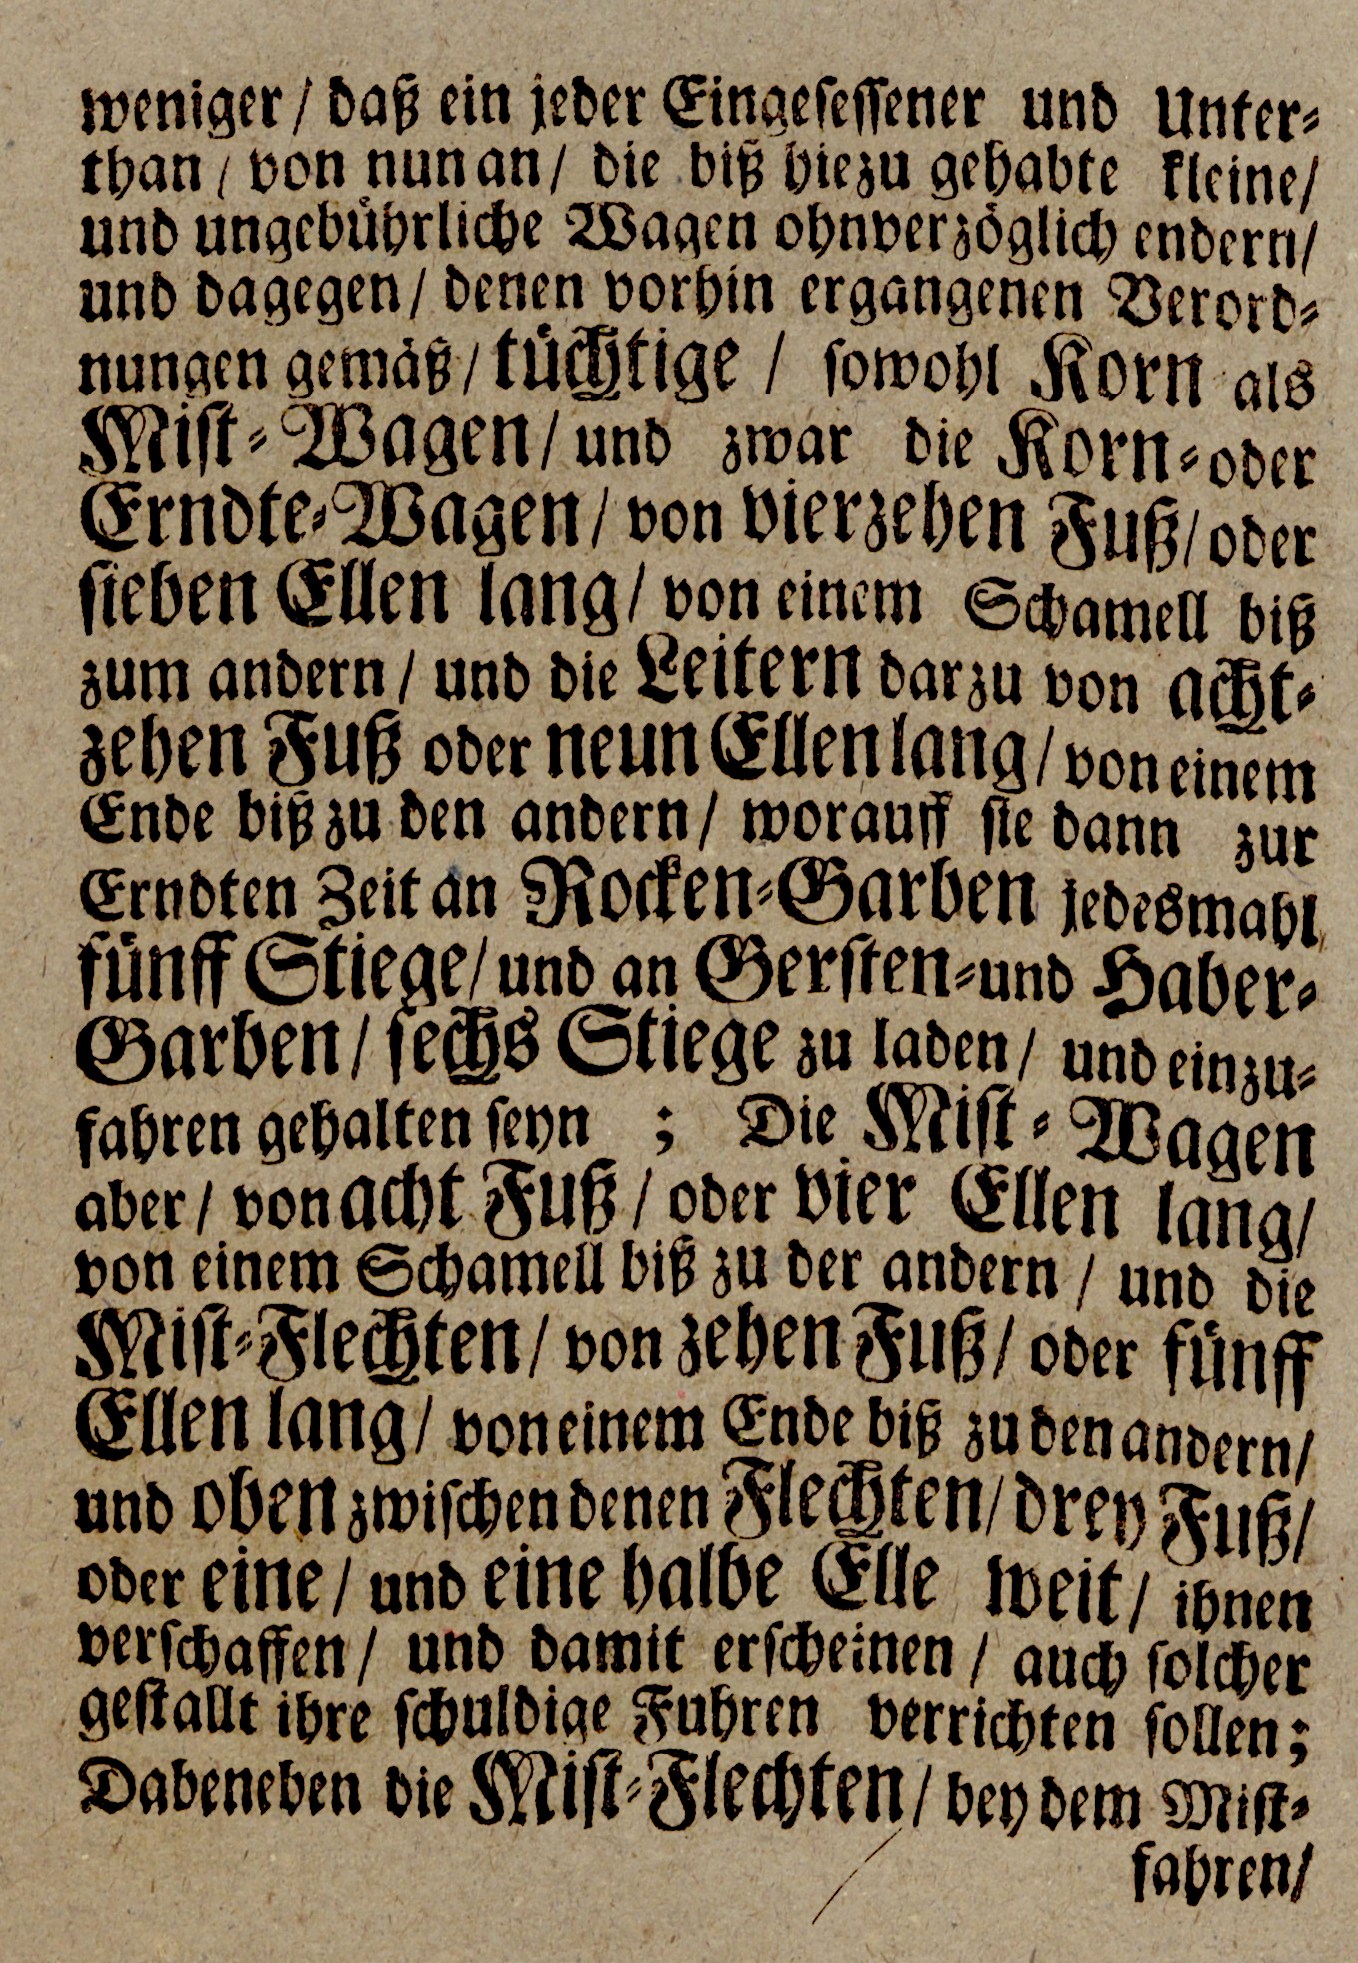 weniger / daß ein jeder Eingesessener und Unter-
than / von nun an / die biß hiezu gehabte kleine /
und ungebührliche Wagen ohnverzöglich endern /
und dagegen / denen vorhin ergangenen Verord-
nungen gemäß / tüchtige / sowohl Korn als
Mist-Wagen / und zwar die Korn-oder
Erndte-Wagen / von vierzehen Fuß / oder
sieben Ellen lang / von einem Schamell biß
zum andern / und die Leitern darzu von acht-
zehen Fuß oder neun Ellen lang / von einem
Ende biß zu den andern / worauff sie dann zur
Erndten Zeit an Rocken-Garben jedesmahl
fünff Stiege / und an Gersten-und Haber-
Garben / sechs Stiege zu laden / und einzu-
fahren gehalten seyn ; Die Mist-Wagen
aber / von acht Fuß / oder vier Ellen lang /
von einem Schamell biß zu der andern / und die
Mist-Flechten / von zehen Fuß / oder fünff
Ellen lang / von einem Ende biß zu den andern /
und oben zwischen denen Flechten / drey Fuß /
oder eine / und eine halbe Elle weit / ihnen
verschaffen / und damit erscheinen / auch solcher
gestallt ihre schuldige Fuhren verrichten sollen ;
Dabeneben die Mist-Flechten / bey dem Mist-
fahren /